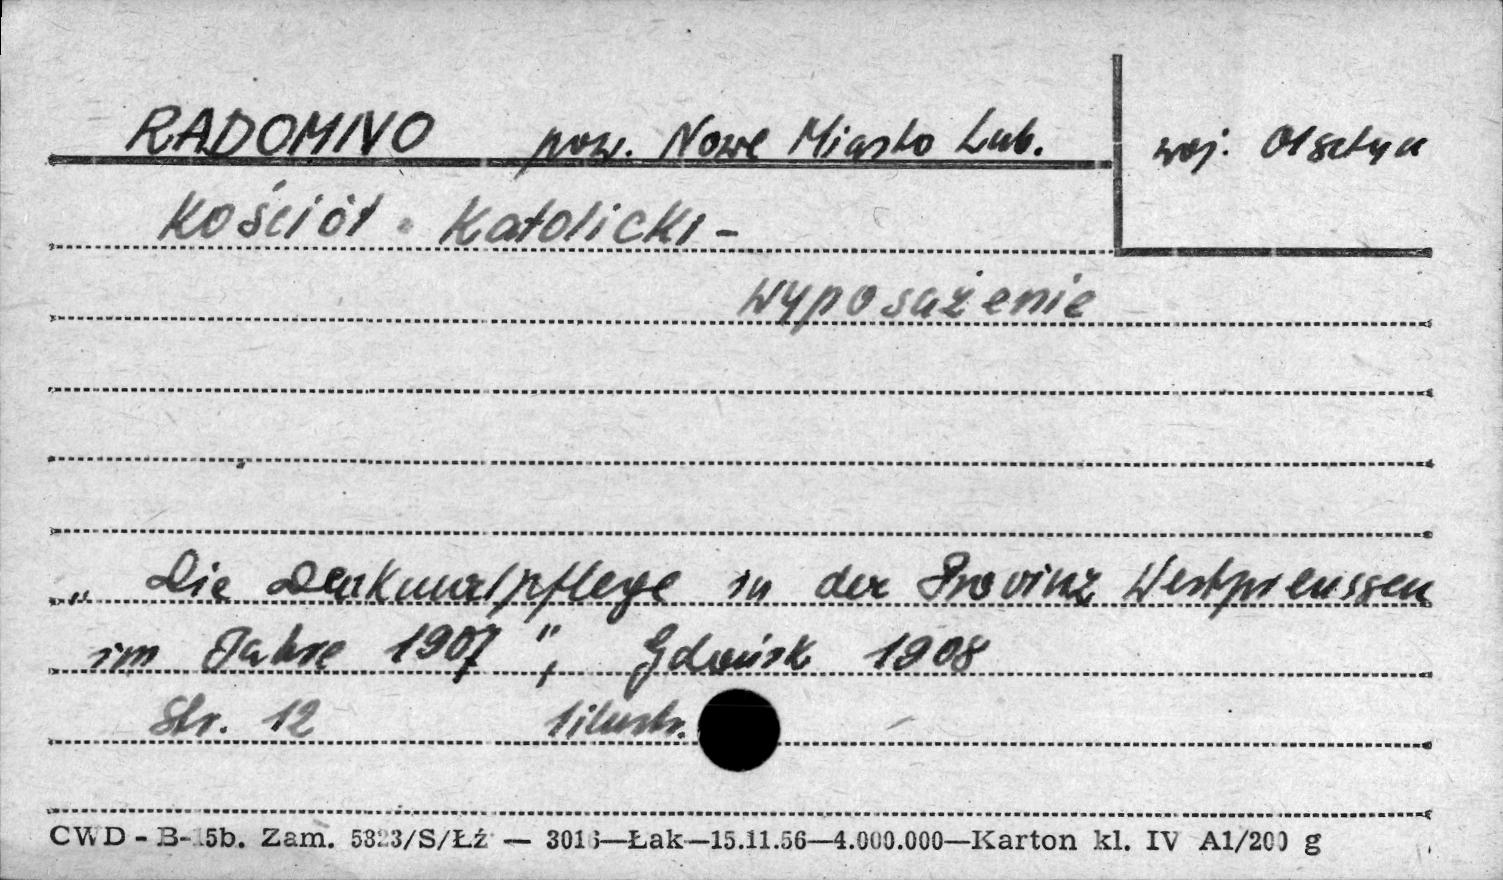 RADOMNO pow. Nowe Miasto Lub. woj. Olsztyn
Kościół Katolicki -
wyposażenie
„ Die Denkmalpflege in der Provinz Westpreussen
im Jahre 1907 ", Gdańsk 1908
Str. 12 1 ilustr.
CWD - B-15b. Zam. 5823/S/Łź — 3016—Łak—15.11.56—4.000.000—Karton kl. IV A1/200 g